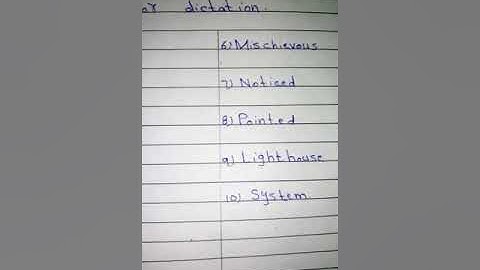 ar dictation.
6) Mischievous
7) Noticed
8) Pointed
9) Lighthouse
10) System.